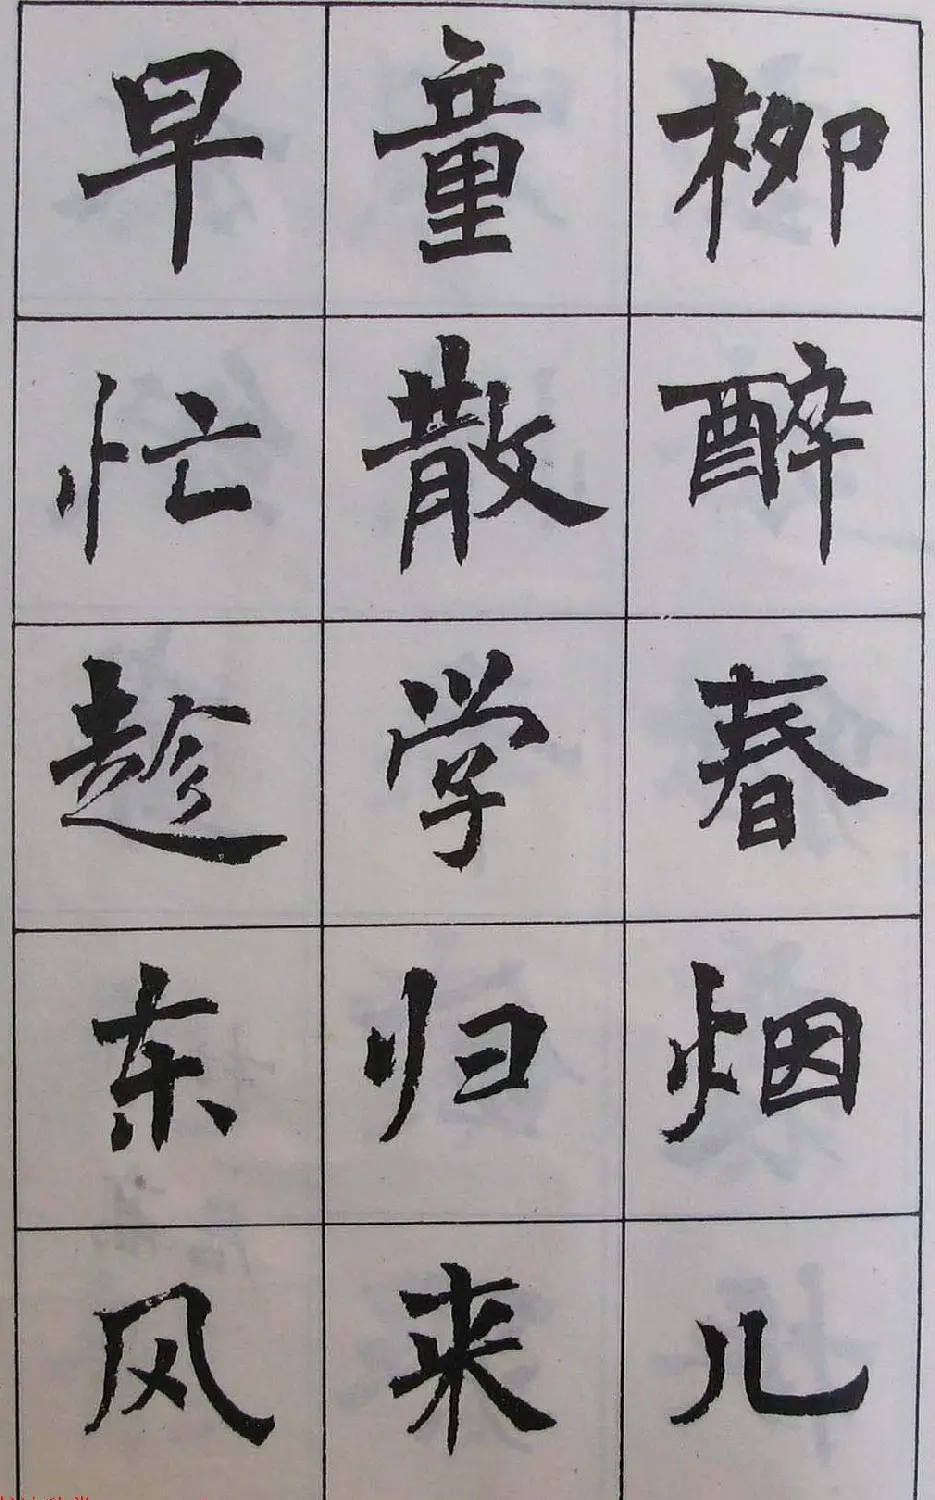 柳醉春烟儿
童散学归来
早忙趁东风